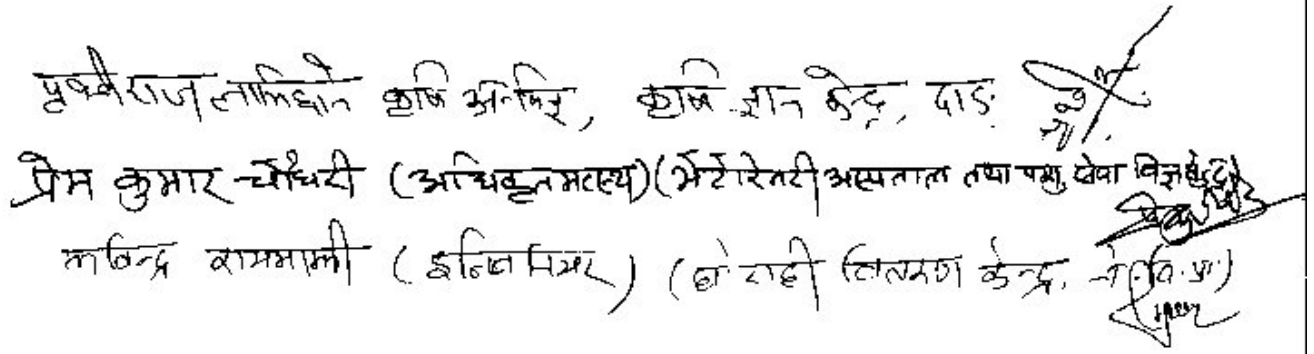 पृथ्वीराज लामिछाने कृषि अधिकृत, कृषि ज्ञान केन्द्र, दाङ
प्रेम कुमार चौधरी (अधिकृत मत्स्य) (भेटेरिनरी अस्पताल तथा पशु सेवा विज्ञ केन्द्र)
कविन्द्र राममाली (इन्जिनियर) (घोराही वितरण केन्द्र, ने.वि.प्रा)